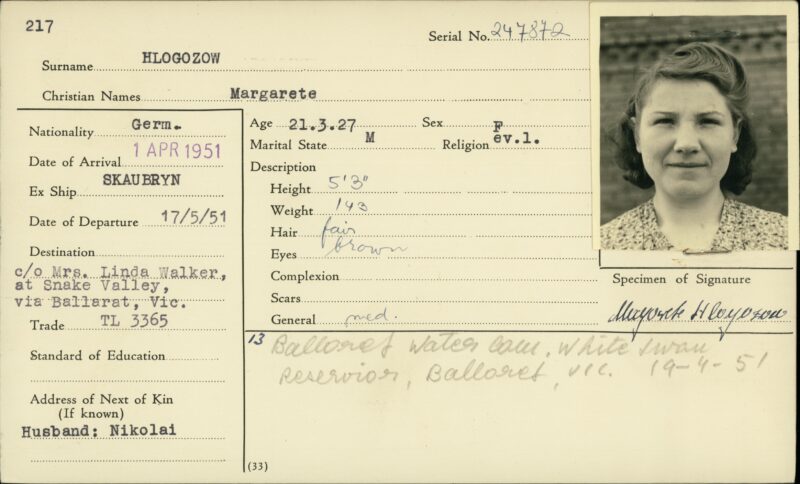 217
Serial No. 247872
Surname HLOGOZOW
Christian Names Margarete
Nationality Germ.
Date of Arrival 1 APR 1951
Ex Ship SKAUBRYN
Date of Departure 17/5/51
Destination
c/o Mrs. Linda Walker,
at Snake Valley,
via Ballarat, Vic.
Trade TL 3365
Standard of Education
Address of Next of Kin
(If known)
Husband: Nikolai
Age 21.3.27 Sex F
Marital State M Religion ev.l.
Description
Height 5'3"
Weight 143
Hair fair
Eyes brown
Complexion
Scars
General med.
Specimen of Signature
13 Balloret Water Com. White Swan
Reservior, Balloret, Vic. 19-4-51
(33)